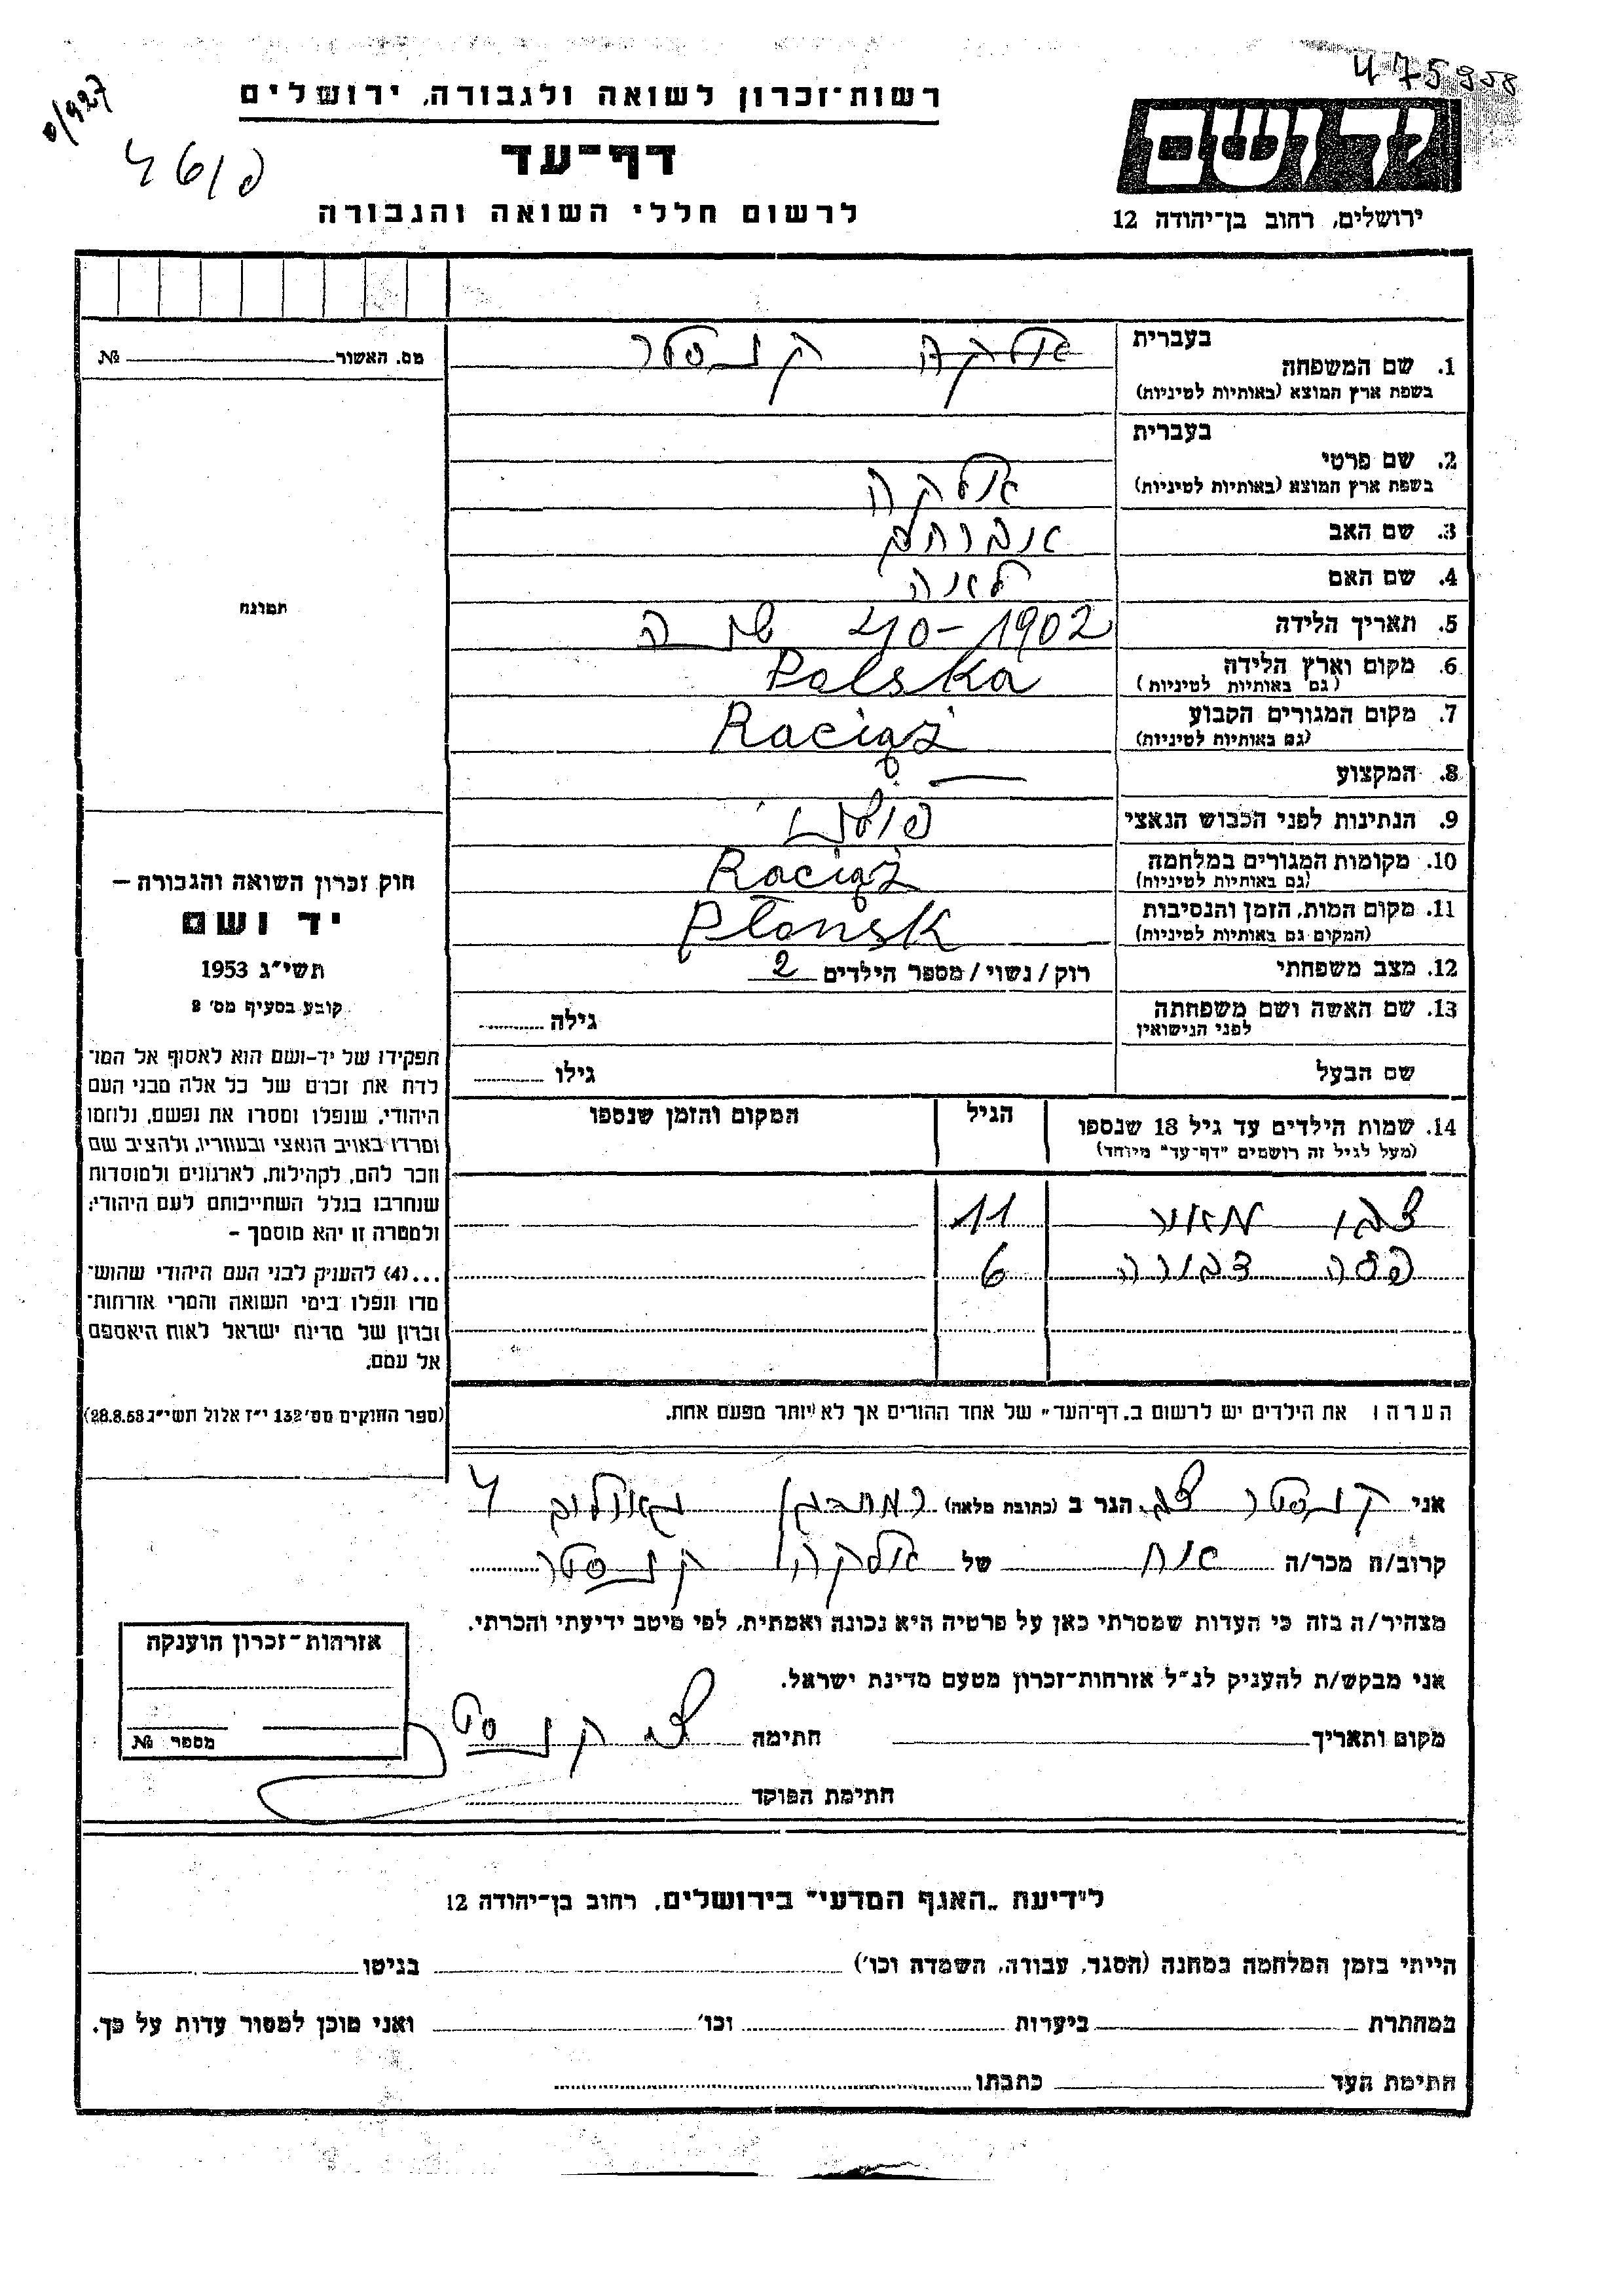 475958
ס/927
רשות־זכרון לשואה ולגבורה, ירושלים
דף־עד
לרשום חללי השואה והגבורה
יד ושם
ירושלים, רחוב בן־יהודה 12
מס. האשור №
תמונה
בעברית
1. שם המשפחה
בשפת ארץ המוצא (באותיות לטיניות)
בעברית
2. שם פרטי
בשפת ארץ המוצא (באותיות לטיניות)
3. שם האב אברהם
4. שם האם לאה
5. תאריך הלידה 1902-40
6. מקום וארץ הלידה Polska
(גם באותיות לטיניות)
7. מקום המגורים הקבוע Raciąż
(גם באותיות לטיניות)
8. המקצוע —
9. הנתינות לפני הכבוש הנאצי
10. מקומות המגורים במלחמה Raciąż
(גם באותיות לטיניות)
11. מקום המות, הזמן והנסיבות Płonsk
(המקום גם באותיות לטיניות)
12. מצב משפחתי רוק/נשוי/מספר הילדים 2
13. שם האשה ושם משפחתה גילה
לפני הנישואין
שם הבעל גילו
14. שמות הילדים עד גיל 18 שנספו הגיל המקום והזמן שנספו
(מעל לגיל זה רושמים "דף־עד" מיוחד)
צבי מאיר 11
פסה דבורה 6
הערה: את הילדים יש לרשום ב„דף־העד" של אחד ההורים אך לא יותר מפעם אחת.
חוק זכרון השואה והגבורה —
יד ושם
תשי"ג 1953
קובע בסעיף מס' 2
תפקידו של יד-ושם הוא לאסוף אל המו־
לדת את זכרם של כל אלה מבני העם
היהודי, שנפלו ומסרו את נפשם, נלחמו
ומרדו באויב הנאצי ובעוזריו, ולהציב שם
וזכר להם, לקהילות, לארגונים ולמוסדות
שנחרבו בגלל השתייכותם לעם היהודי;
ולמטרה זו יהא מוסמך —
...(4) להעניק לבני העם היהודי שהוש־
מדו ונפלו בימי השואה והמרי אזרחות־
זכרון של מדינת ישראל לאות היאספם
אל עמם.
(ספר החוקים מס' 132 י"ז אלול תשי"ג 28.8.53)
אני הגר ב (כתובת מלאה) 4
קרוב/ה מכר/ה אח של
מצהיר/ה בזה כי העדות שמסרתי כאן על פרטיה היא נכונה ואמתית, לפי מיטב ידיעתי והכרתי.
אני מבקש/ת להעניק לנ"ל אזרחות־זכרון מטעם מדינת ישראל.
מקום ותאריך חתימה
חתימת הפוקד
אזרחות־זכרון הוענקה
מספר №
לידיעת „האגף המדעי" בירושלים, רחוב בן־יהודה 12
הייתי בזמן המלחמה במחנה (הסגר, עבודה, השמדה וכו') בגיטו
במחתרת ביערות וכו' ואני מוכן למסור עדות על כך.
חתימת העד כתבתו